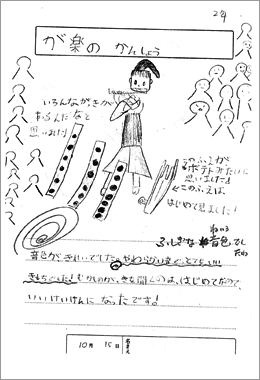 2年
が楽の かんしょう
いろんながっきが
あるんだなと
思いました!
このふえが
ポテトみたいに
思いました!
このふえは、
はじめて見ました!
ねいろ
ふしぎな 音色でし
たね
音色が、きれいでした。やわらかい音で、とても
きもちでした! むかしのがっきを聞くのは、はじめてなので、
いいけいけんになったです!
10月 15日